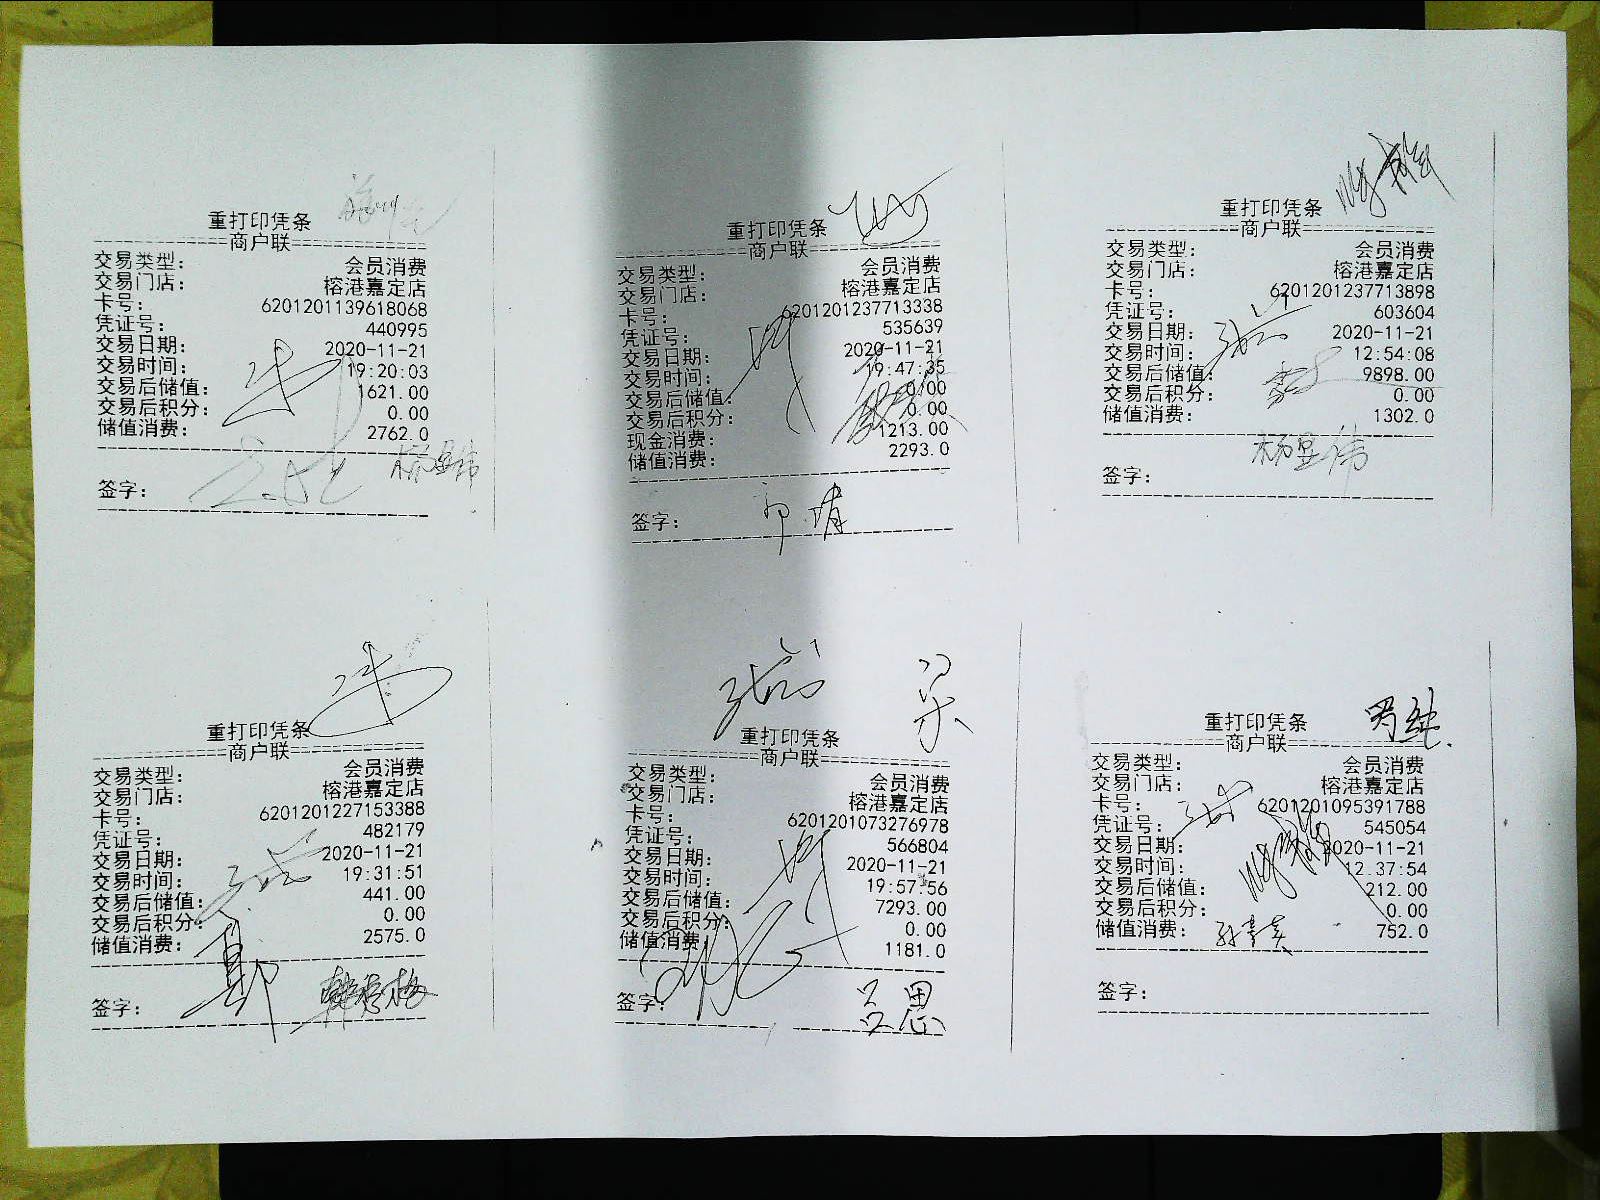 重打印凭条
商户联
交易类型: 会员消费
交易门店: 榕港嘉定店
卡号: 6201201139618068
凭证号: 440995
交易日期: 2020-11-21
交易时间: 19:20:03
交易后储值: 1621.00
交易后积分: 0.00
储值消费: 2762.0
杨昱伟
签字:
重打印凭条
商户联
交易类型: 会员消费
交易门店: 榕港嘉定店
卡号: 6201201237713338
凭证号: 535639
交易日期: 2020-11-21
交易时间: 19:47:35
交易后储值: 0.00
交易后积分: 0.00
现金消费: 1213.00
储值消费: 2293.0
签字:
重打印凭条
商户联
交易类型: 会员消费
交易门店: 榕港嘉定店
卡号: 6201201237713898
凭证号: 603604
交易日期: 2020-11-21
交易时间: 12:54:08
交易后储值: 9898.00
交易后积分: 0.00
储值消费: 1302.0
杨昱伟
签字:
重打印凭条
商户联
交易类型: 会员消费
交易门店: 榕港嘉定店
卡号: 6201201227153388
凭证号: 482179
交易日期: 2020-11-21
交易时间: 19:31:51
交易后储值: 441.00
交易后积分: 0.00
储值消费: 2575.0
签字:
重打印凭条
商户联
交易类型: 会员消费
交易门店: 榕港嘉定店
卡号: 6201201073276978
凭证号: 566804
交易日期: 2020-11-21
交易时间: 19:57:56
交易后储值: 7293.00
交易后积分: 0.00
储值消费: 1181.0
签字: 吕思
重打印凭条
商户联
交易类型: 会员消费
交易门店: 榕港嘉定店
卡号: 6201201095391788
凭证号: 545054
交易日期: 2020-11-21
交易时间: 12:37:54
交易后储值: 212.00
交易后积分: 0.00
储值消费: 752.0
签字: